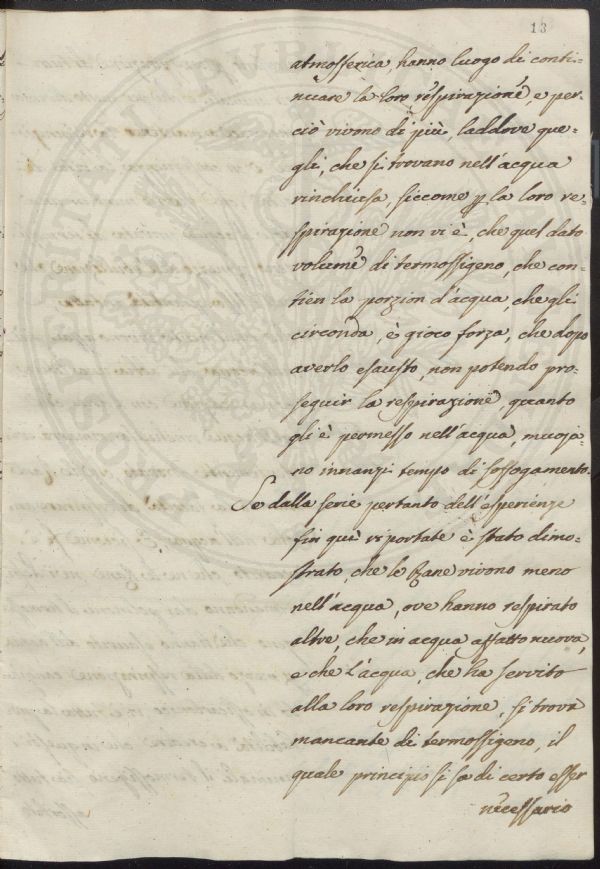 13
atmosferica, hanno luogo di conti=
nuare la loro respirazione, e per=
ciò vivono di più, laddove que=
gli, che si trovano nell'acqua
rinchiusa, siccome p la loro re=
spirazione non vi è, che quel dato
volume di termossigeno, che con=
tien la porzion d'acqua, che gli
circonda, è gioco forza, che dopo
averlo esausto, non potendo pro=
seguir la respirazione, quanto
gli è permesso nell'acqua, muoja=
no innanzi tempo di soffogamento.
Se dalla serie pertanto dell'esperienze
fin quì riportate è stato dimo=
strato, che le Rane vivono meno
nell'acqua, ove hanno respirato
altre, che in acqua affatto nuova,
e che l'acqua, che ha servito
alla loro respirazione, si trova
mancante di termossigeno, il
quale principio si sa di certo esser
necessario